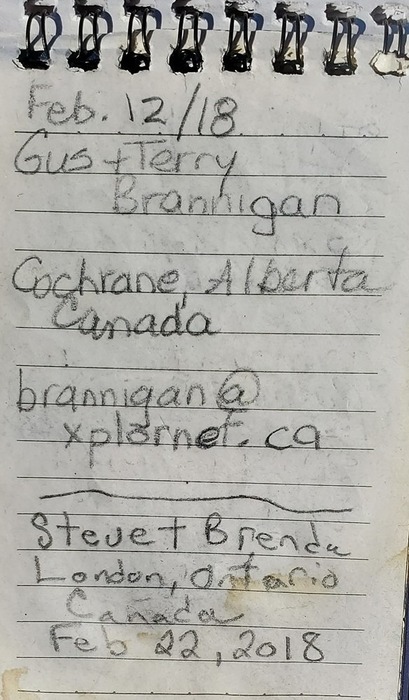 Feb. 12/18
Gus + Terry
Brannigan
Cochrane, Alberta
Canada
brannigan@
xplornet.ca
Steve + Brenda
London, Ontario
Canada
Feb 22, 2018